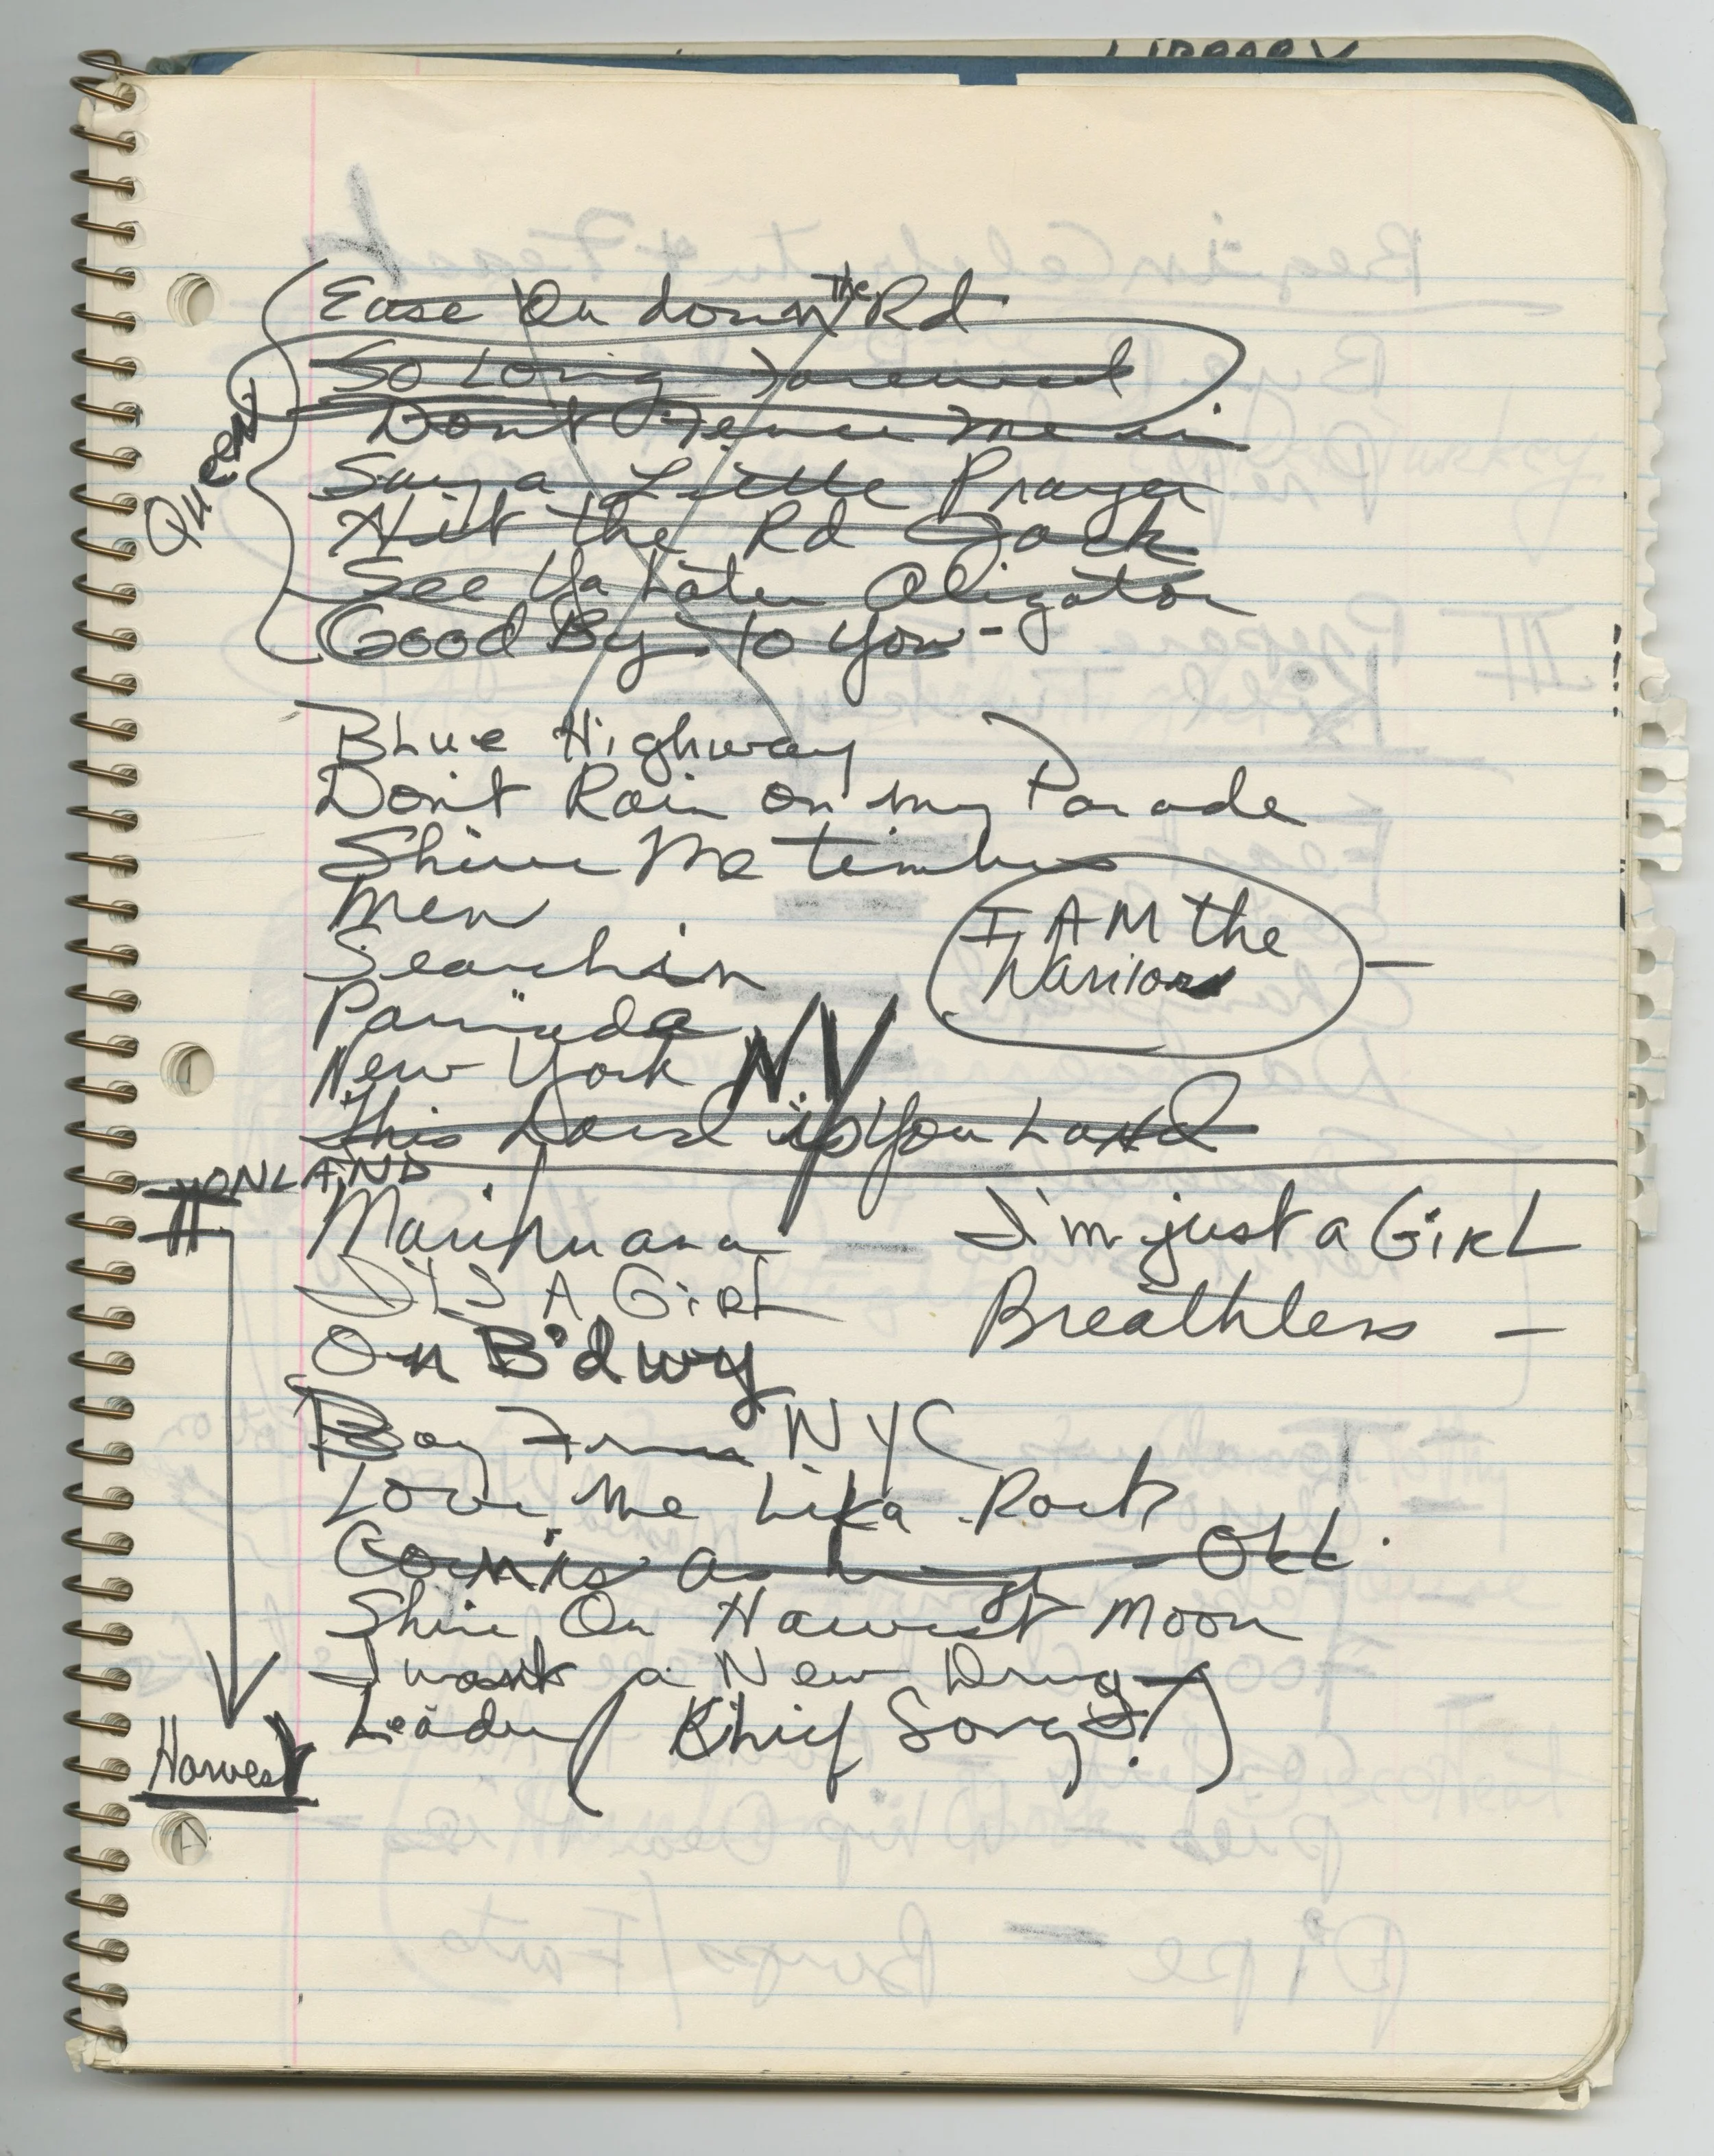 LIBRARY
Ease On down the Rd
So Long Farewell
Don't Fence me in
Queen
Say a Little Prayer
Hit the Rd Jack
See Ya Later Aligator
Good By to You -
Blue Highway
Don't Rain on my Parade
Shiver Me timbers
Men
I AM the
Warrior
Searchin
New York NY
This Land is You Land
II ON LAND
Marihuana
I'm just a GiRL
It's A GiRL
Breathless -
On B'dwy
Boy From NYC
Love Me Lika Rock
Corn is as high - OKL.
Shine On Harvest Moon
I want a New Drug
Leader (Chief Song?)
Harvest